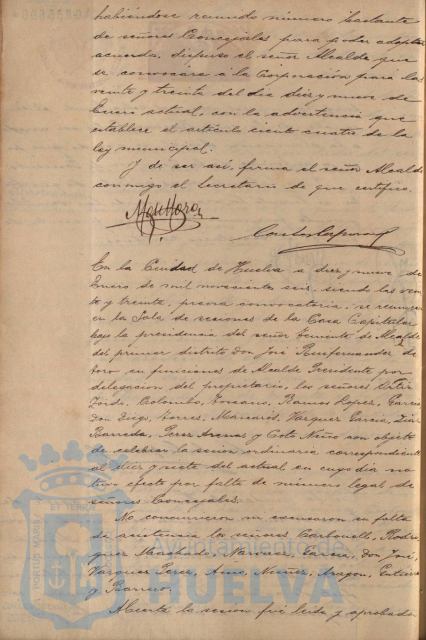 habiéndose reunido número bastante
de señores Concejales para poder adoptar
acuerdo, dispuso el señor Alcalde que
se convocára á la Corporación para las
veinte y treinta del dia diez y nueve de
Enero actual, con la advertencia que
establece el artículo ciento cuatro de la
ley municipal.
Y de ser así, firma el señor Alcalde
conmigo el Secretario de que certifico.
En la Ciudad de Huelva a diez y nueve de
Enero de mil novecientos seis, siendo las vein
te y treinta, previa convocatoria, se reunieron
en la Sala de sesiones de la Casa Capitular
bajo la presidencia del señor Teniente de Alcalde
del primer distrito Don José Fernandez de
toro en funciones de Alcalde Presidente por
delegacion del propietario, los señores
Colombo, Toscano, Ramos Lopez, Garcia
Don Diego, Torres, Mascarós, Vazquez Garcia, Diaz
Barreda, Perez Arenas y Coto Nuño con objeto
de celebrar la sesion ordinaria correspondiente
al diez y siete del actual en cuyo dia no
tuvo efecto por falta de número legal de
señores Concejales.
No concurrieron ni excusaron su falta
de asistencia los señores Carbonell, Rodri
guez Machado, Garcia, Don José,
Vazquez Perez, Nuñez, Aragon,
y Barroso.
Abierta la sesion fué leida y aprobada
PORTUS MARIS ET TERRE CUSTODIA
Ayuntamiento de
HUELVA